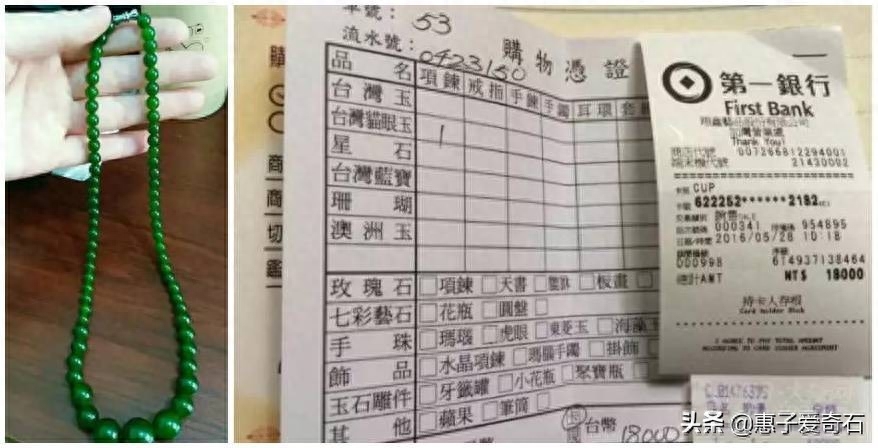 車號： 53
流水號： 0423150
購物憑證
品名 項鍊 戒指 手鍊 手鐲 耳環
台灣玉
台灣貓眼玉 1
星石
台灣藍寶
珊瑚
澳洲玉
玫瑰石 □項鍊 □天書 □板畫
七彩藝石 □花瓶 □圓盤 □
手珠 □瑪瑙 □虎眼 □東菱玉 □海藻
飾品 □水晶項鍊 □瑪瑙手鐲 □掛飾
玉石雕件 □牙籤罐 □小花瓶 □聚寶瓶
其他 □蘋果 □筆筒 □
台幣 18000
購
商
商
切
鑑
第一銀行
First Bank
Thank You!
商店代號 007266812294001
端末機代號 21430002
卡別 CUP
卡號 622252******2182
交易類別 銷售 SALE
000341 954895
日期/時間 2016/05/28 10:18
000998 614937138464
總計AMT NT$ 18000
持卡人存根
Card Holder Stub
I AGREE TO PAY TOTAL AMOUNT
ACCORDING TO CARD ISSUER AGREEMENT
头条 @惠子爱奇石